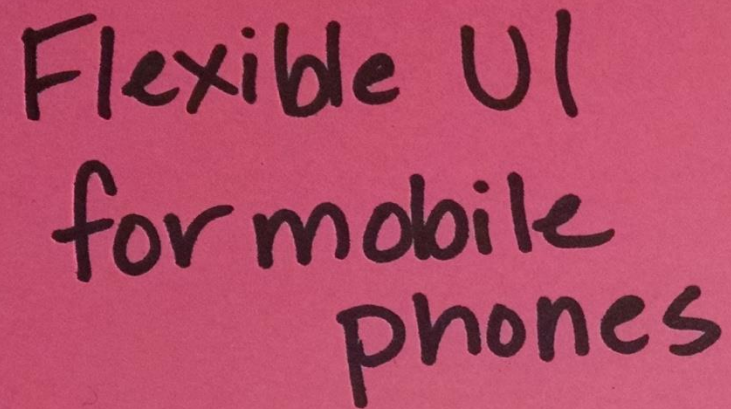 Flexible UI
for mobile
phones